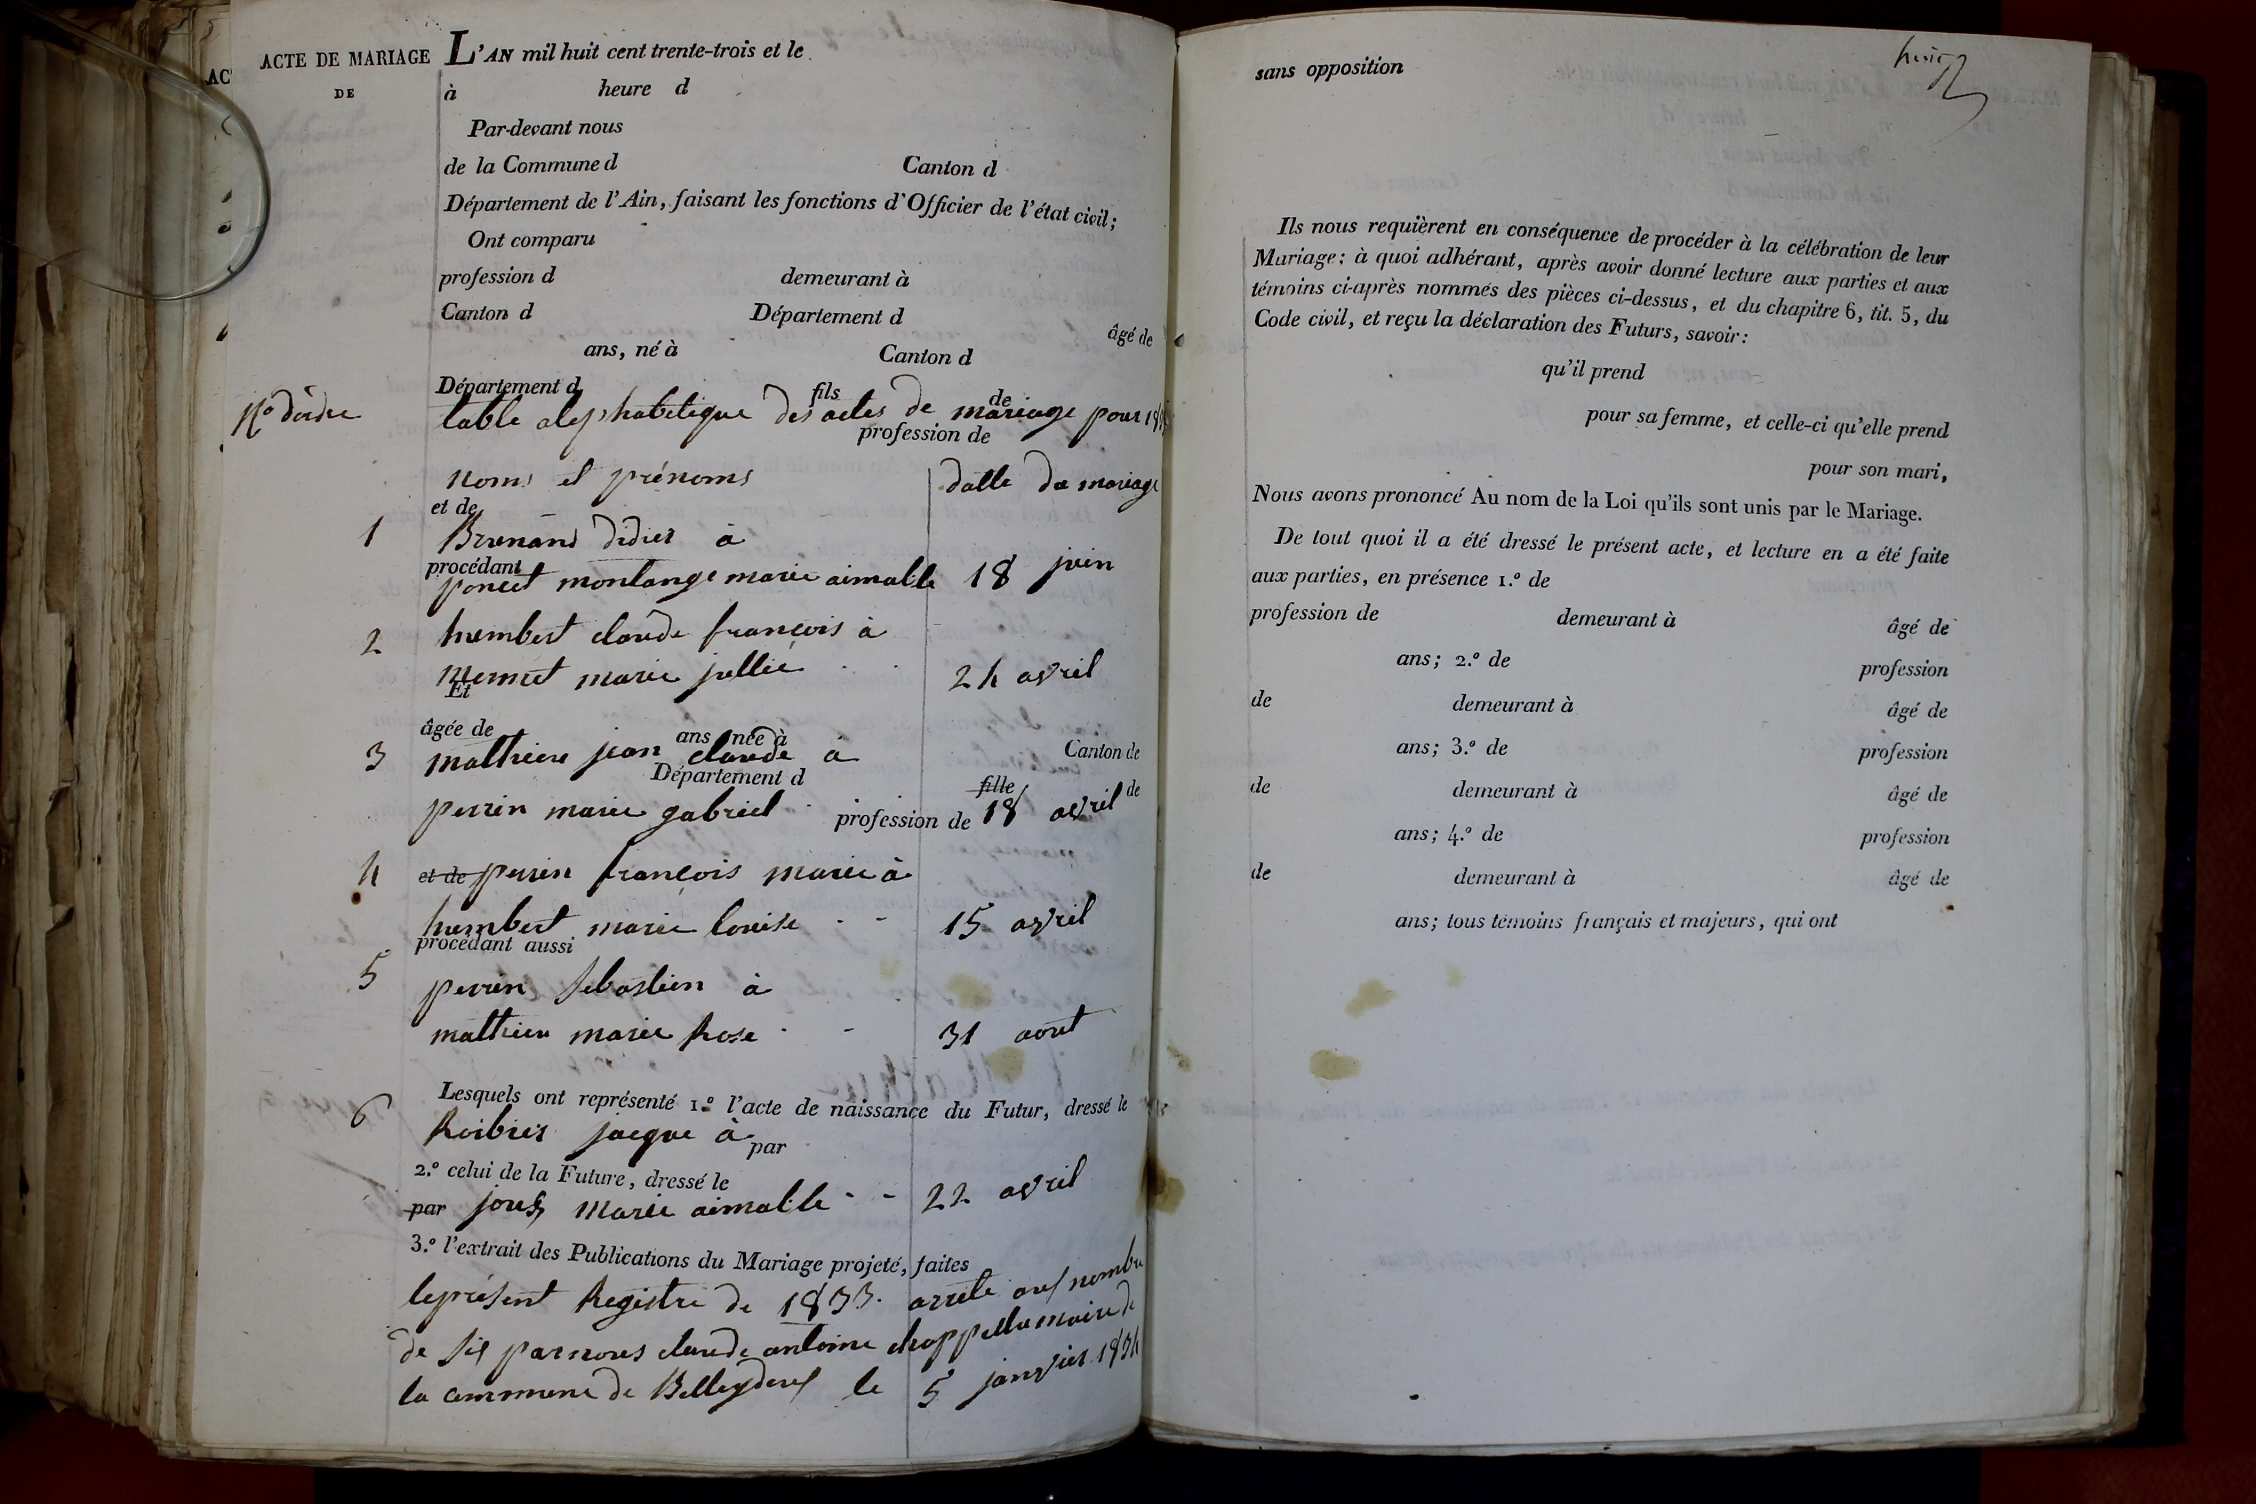 AC
ACTE DE MARIAGE
DE
L'AN mil huit cent trente-trois et le
à heure d
Par-devant nous
de la Commune d Canton d
Département de l'Ain, faisant les fonctions d'Officier de l'état civil;
Ont comparu
profession d demeurant à
Canton d Département d
âgé de
ans, né à Canton d
Département d fils de
No dordre table alephabetique des actes de mariage pour
profession de
noms et prénoms datte du mariage
et de
1 Brunand didier à
procédant
poncet montange marie aimable 18 juin
2 humbert claude françois à
Monnet marie jullie 24 avril
Et
âgée de ans née à
3 mathieu jean claude à Canton de
Département d
fille de
perrin marie gabriel 18 avril
profession de
4 et de perrin françois marie à
humbert marie louise 15 avril
procédant aussi
5 perrin Sebastien à
mathieu marie Rose 31 aout
Lesquels ont représenté 1.º l'acte de naissance du Futur, dressé le
6 Roibier jacque à
par
2.º celui de la Future, dressé le
par marie aimable 22 avril
3.º l'extrait des Publications du Mariage projeté, faites
le présent Registre de 1833 arrete au nombre
de six par nous claude antoine maire de
la commune de Belleydoux le 5 janvier 1834
sans opposition
Ils nous requièrent en conséquence de procéder à la célébration de leur
Mariage: à quoi adhérant, après avoir donné lecture aux parties et aux
témoins ci-après nommés des pièces ci-dessus, et du chapitre 6, tit. 5, du
Code civil, et reçu la déclaration des Futurs, savoir:
qu'il prend
pour sa femme, et celle-ci qu'elle prend
pour son mari,
Nous avons prononcé Au nom de la Loi qu'ils sont unis par le Mariage.
De tout quoi il a été dressé le présent acte, et lecture en a été faite
aux parties, en présence 1.º de
profession de demeurant à âgé de
ans; 2.º de profession
de demeurant à âgé de
ans; 3.º de profession
de demeurant à âgé de
ans; 4.º de profession
de demeurant à âgé de
ans; tous témoins français et majeurs, qui ont